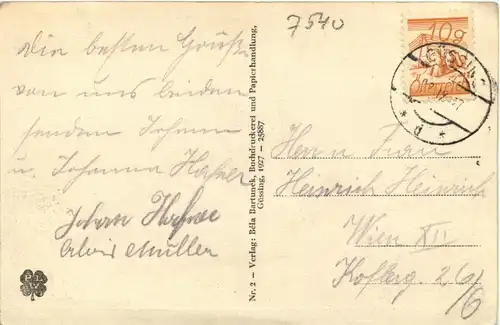 7540
Die besten Grüße
von uns beiden
senden Johann
u. Johanna Hafner
Johann Hafner
Alois Müller
P.L.W.
Nr. 2 – Verlag: Béla Bartunek, Buchdruckerei und Papierhandlung,
Güssing, 1927 – 25887
10g
GÜSSING
Herrn u Frau
Heinrich Heinrich
Wien XII
Koflerg. 2